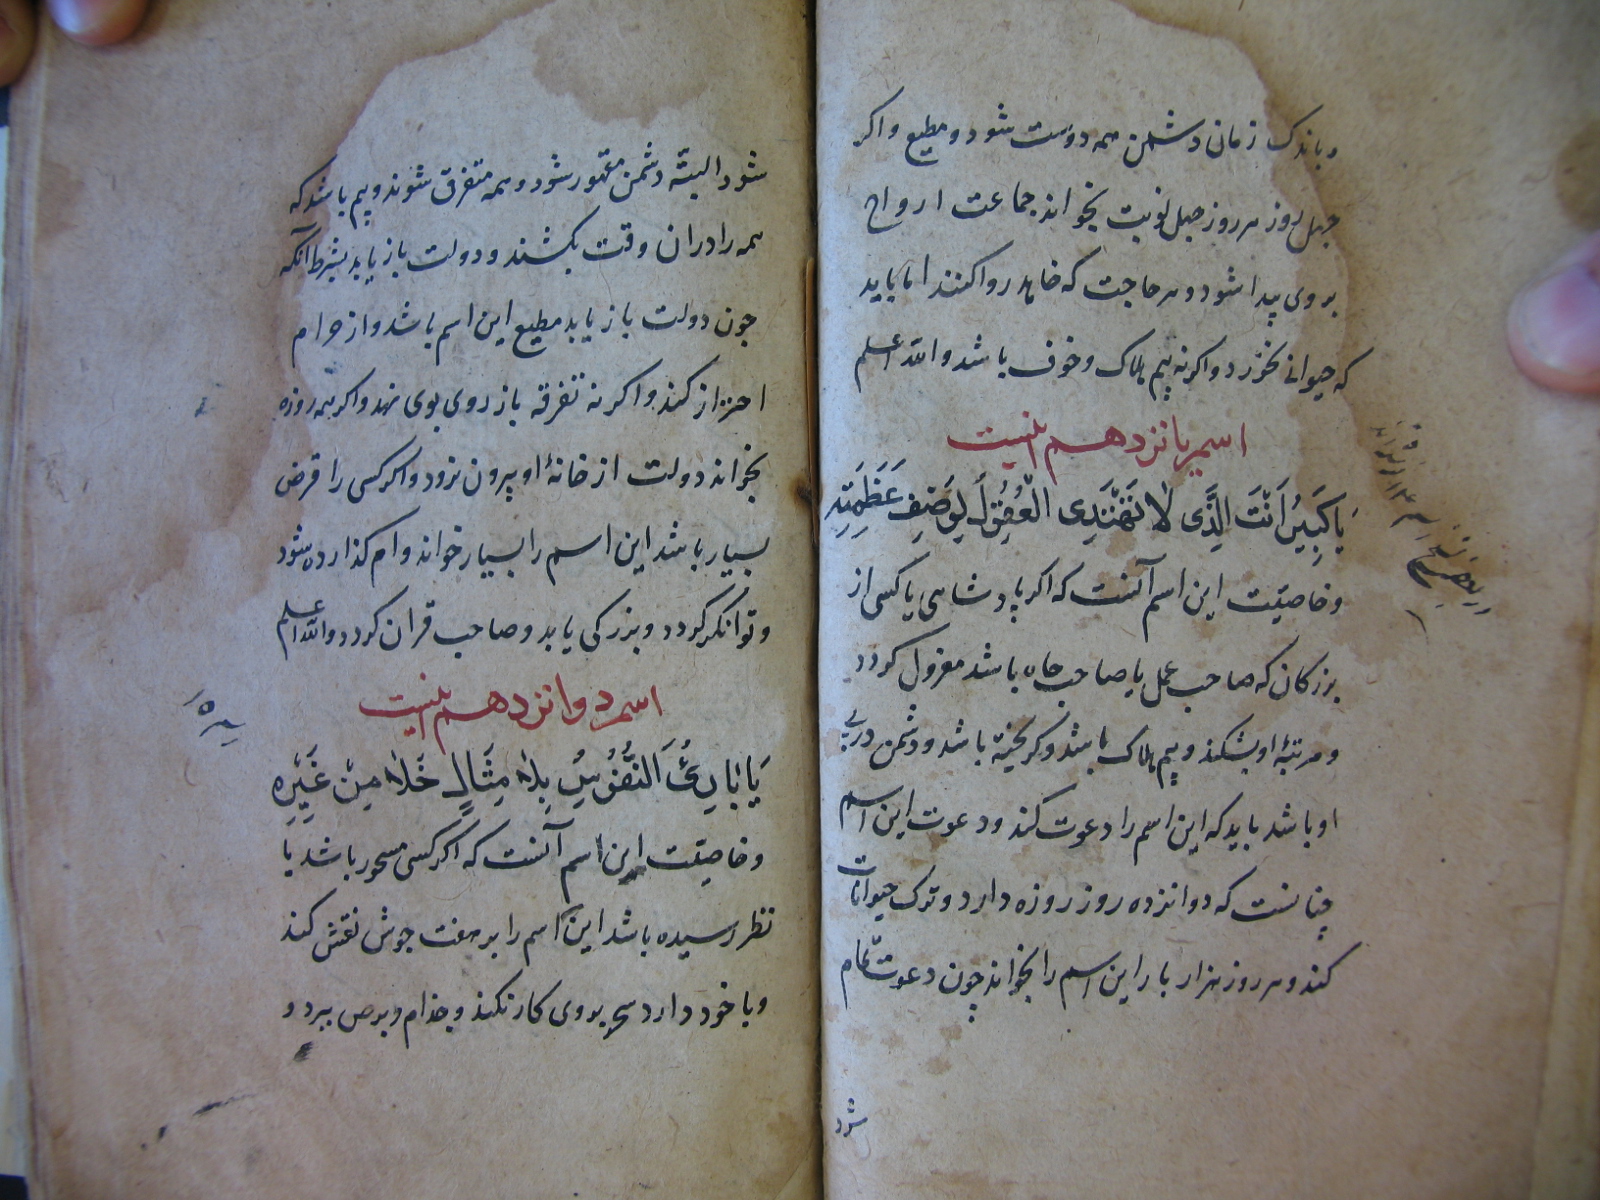 و باندک زمانی دشمن همه دوست شود و مطیع و اکر
چهل روز هر روز چهل نوبت بخواند جماعت ارواح
بروی پیدا شود و هر حاجت که خاهد روا کنند اما باید
که حیوانی نخورد و اکر نه بیم هلاک و خوف باشد والله اعلم
اسم یانزدهم اینست
یَا کَبِیرُ اَنْتَ الَّذِی لَا تَهْتَدِی الْعُقُولُ لِوَصْفِ عَظَمَتِهِ
و خاصیّت این اسم آنست که اکر پادشاهی یا کسی از
بزرکان که صاحب عمل یا صاحب جاه باشد معزول کردد
و مرتبهٔ او بشکند و بیم هلاک باشد و کریخته باشد و دشمن در پی
او باشد باید که این اسم را دعوت کند و دعوت این اسم
چنانست که دوانزده روز روزه دارد و ترک حیوانات
کند و هر روز هزار بار این اسم را بخواند چون دعوت تمام
شود
شود البتّه دشمن مقهور شود و همه متفرق شوند و بیم باشد که
همه را در ان وقت بکشند و دولت باز یابد بشرط آنکه
چون دولت باز یابد مطیع این اسم باشد و از حرام
احتراز کند و اکر نه تفرقه باز روی بوی نهد و اکر همه روزه
بخواند دولت از خانهٔ او بیرون نرود و اکر کسی را قرض
بسیار باشد این اسم را بسیار خواند وام کذارده شود
و توانکر کردد و بزرکی یابد و صاحب قران کردد والله اعلم
اسم دوانزدهم اینست
یَا بَارِئُ النُّفُوسِ بِلَا مِثَالٍ خَلَا مِنْ غَیْرِهِ
و خاصیّت این اسم آنست که اکر کسی مسحور باشد یا
نظر رسیده باشد این اسم را بر هفت جوش نقش کند
و با خود دارد سحر بروی کار نکند و جذام و برص ببرد و